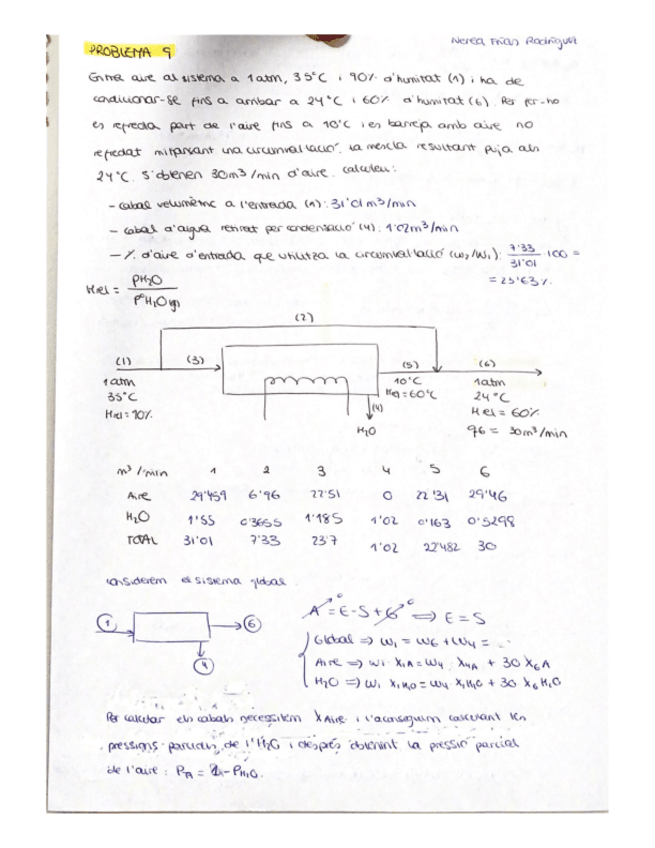 Nerea Frías Rodríguez
PROBLEMA 9
Entra aire al sistema a 1atm, 35°C i 90% d'humitat (1) i ha de
condicionar-se fins a arribar a 24°C i 60% d'humitat (6). Per fer-ho
es refreda part de l'aire fins a 10°C i es barreja amb aire no
refredat mitjansant una circumval·lació. La mescla resultant puja als
24°C. S'obtenen 30m³/min d'aire. calculeu:
- cabal volumètric a l'entrada (1): 31'01 m³/min
- cabal d'aigua retirat per condensació (4): 1'02m³/min
- % d'aire d'entrada que utilitza la circumval·lació (W2/W1): 7'33/31'01 · 100 =
= 23'63%.
Hrel = PH2O / P°H2O(g)
(2)
(1) (3) (5) (6)
1atm 10°C 1atm
35°C Hrel=60°C 24°C
Hrel=90% (4) Hrel=60%
H2O q6 = 30m³/min
m³/min 1 2 3 4 5 6
Aire 29'459 6'96 22'51 0 22'31 29'46
H2O 1'55 0'3655 1'185 1'02 0'163 0'5298
TOTAL 31'01 7'33 23'7 1'02 22'482 30
considerem el sistema global.
1 6 4
A = E-S+G ⟹ E=S
Global ⟹ W1 = W6 + W4 =
Aire ⟹ W1 · X1A = W4 · X4A + 30 X6A
H2O ⟹ W1 X1H2O = W4 · X4H2O + 30 X6H2O
Per calcular els cabals necessitem XAire i l'aconseguim calculant les
pressions parcials de l'H2O i després obtenint la pressió parcial
de l'aire: PA = 1 - PH2O.